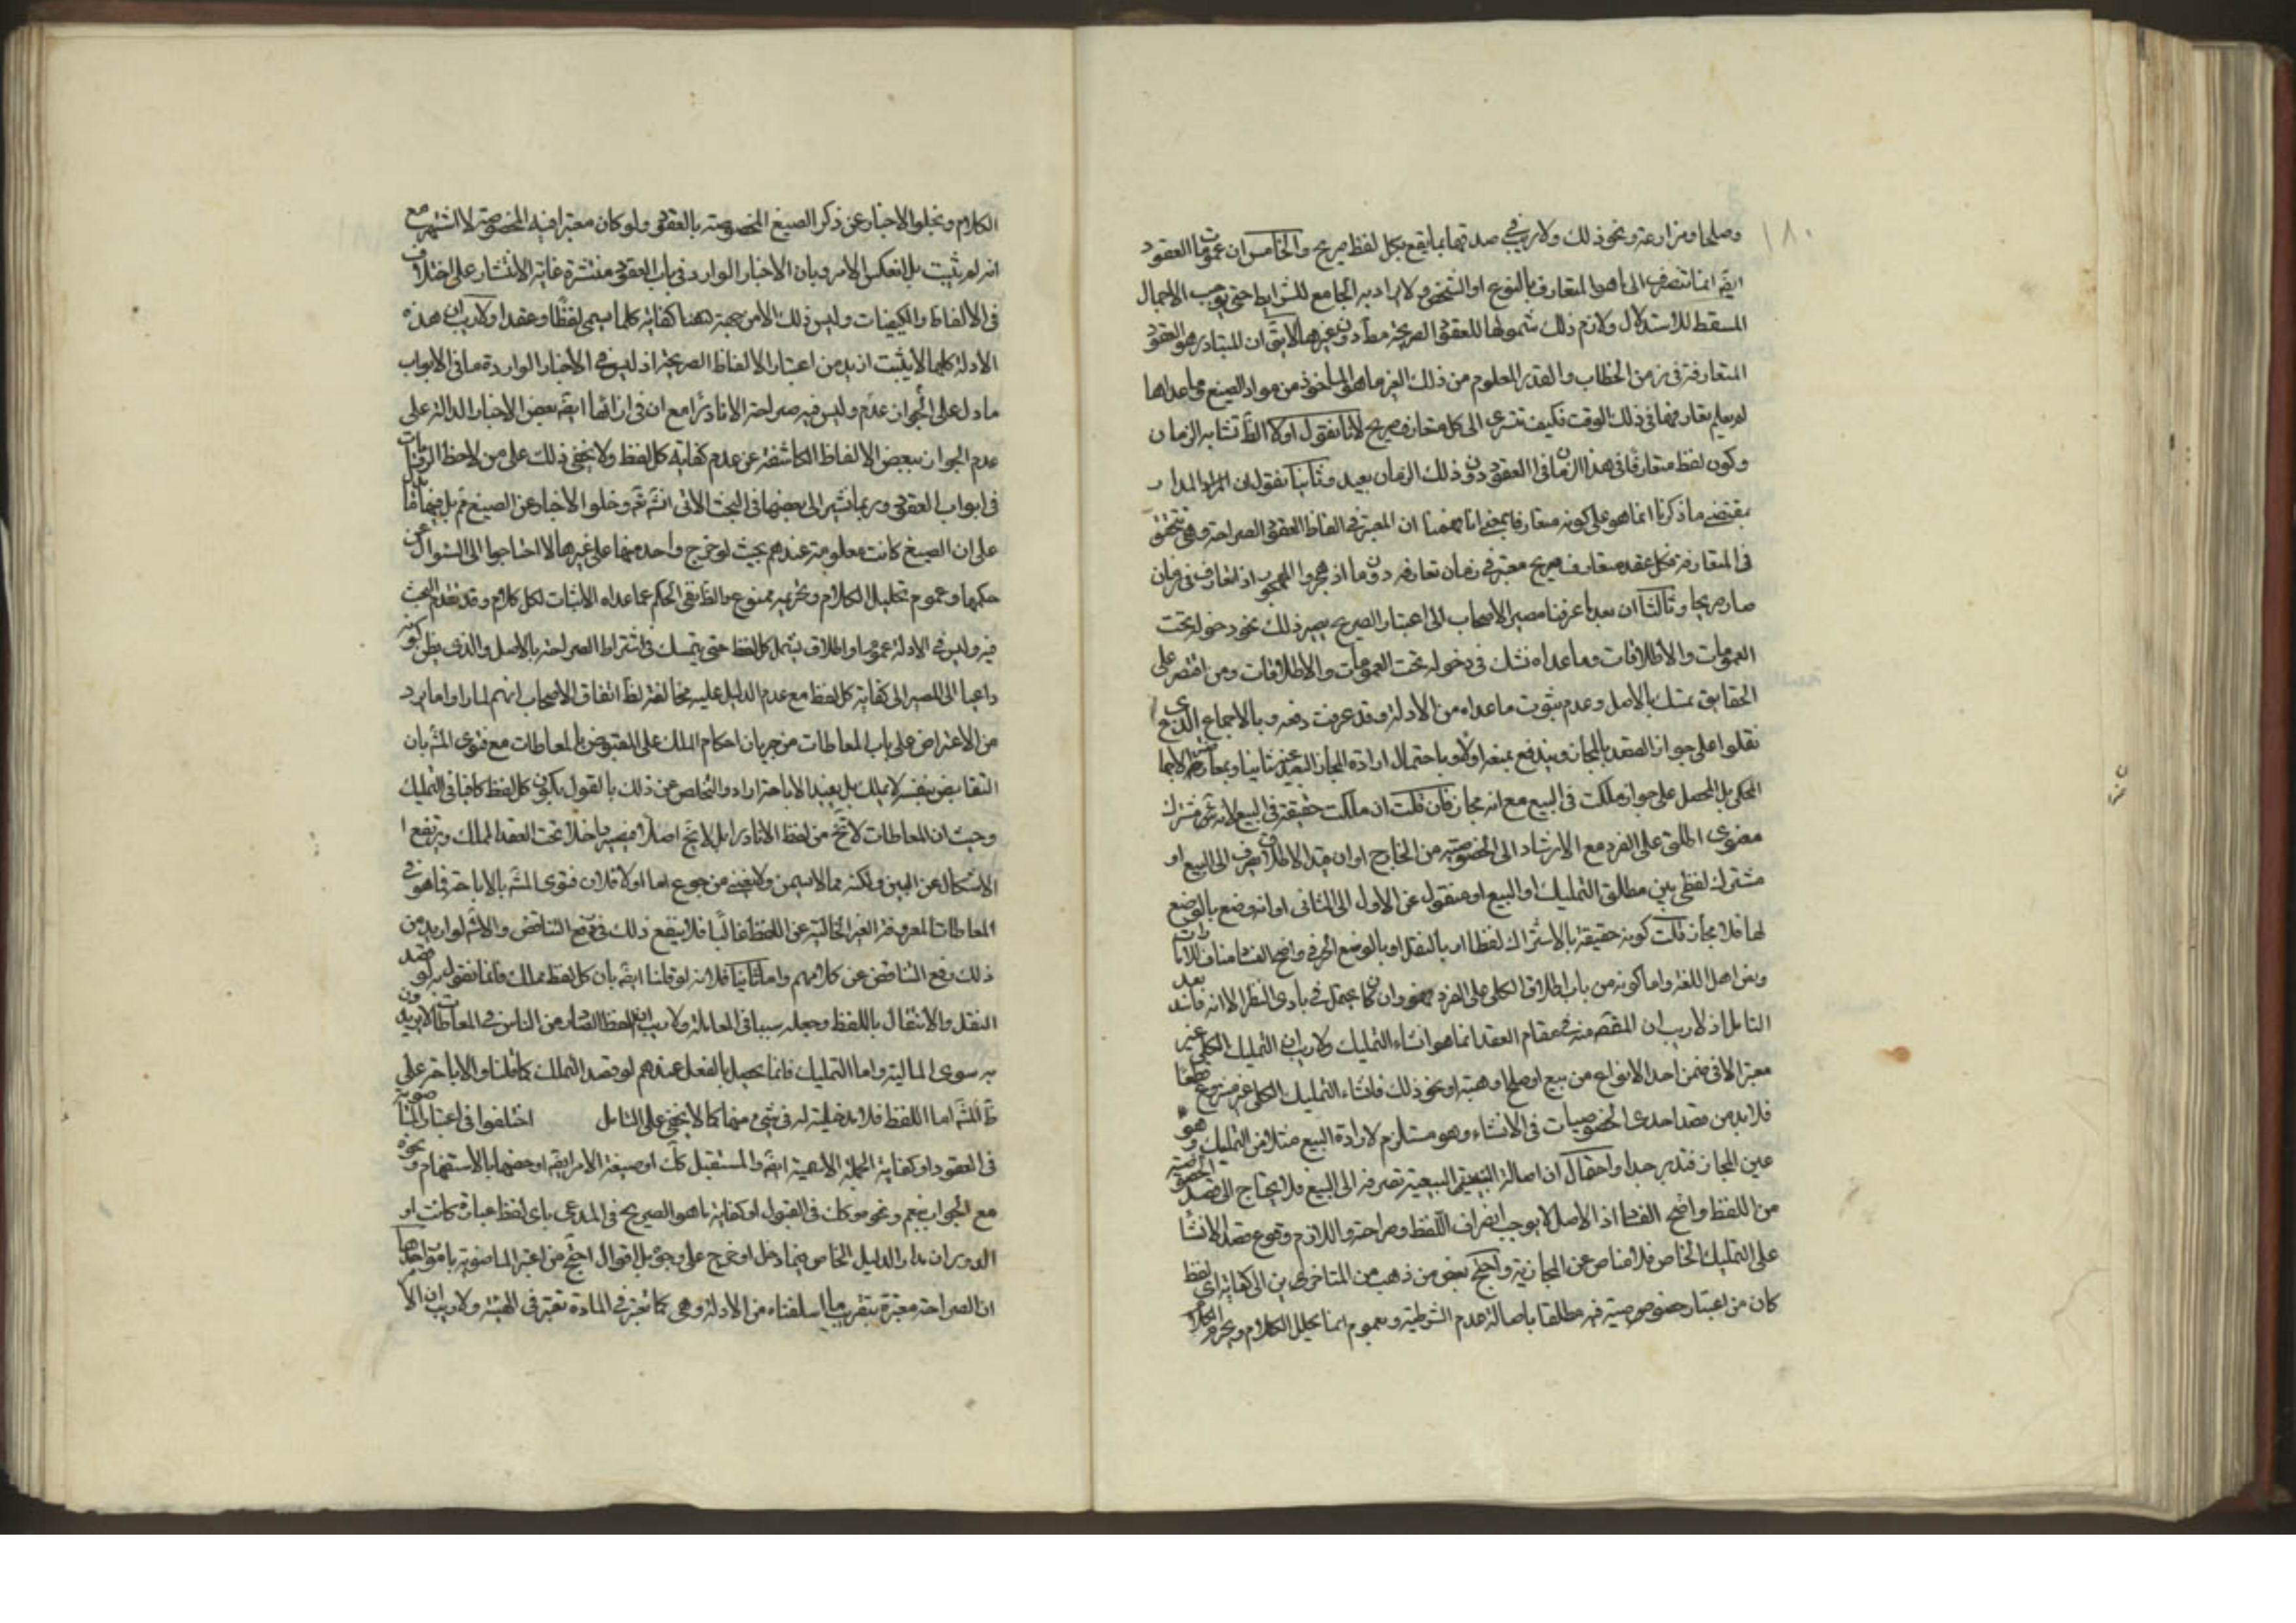 ١٨٠
وصلحا ومزارعة ونحو ذلك ولا ريب في صدقها بما يقع بكل لفظ صريح والخامس ان عمومات العقود
ايضا انما تنصرف الى ما هو المتعارف بالنوع او الشخص ولا يراد به الجامع للشرايط حتى يوجب الاجمال
المسقط للاستدلال ولازم ذلك شمولها للعقود الصريحة مط دون غيرها لا يق ان المتبادر هو العقود
المتعارفة في زمن الخطاب والقدر المعلوم من ذلك انما هو الماخوذ من مواد الصيغ وما عداها
لم يعلم تعارفها في ذلك الوقت فكيف تسرى الى كل متعارف صريح لانا نقول اولا الظ تشابه الزمان
وكون لفظ متعارفا في هذا الزمان في العقود دون ذلك الزمان بعيد وثانيا نقول ان المدار
بمقتضى ما ذكرنا انما هو على كونه متعارفا بمعنى انا فهمنا ان المعتبر في الفاظ العقود الصراحة وهي تتحقق
في المتعارفة فكل عقد متعارف صريح معتبر في زمان تعارفه دون ما اذ هجروا المهجور اذ تعارف في زمان
صار صريحا وثالثا ان بعد ما عرفنا مصير الاصحاب الى اعتبار الصريح يصير ذلك نحو دخوله تحت
العمومات والاطلاقات وما عداه نشك في دخوله تحت العمومات والاطلاقات ومن اقتصر على
الحقايق تمسك بالاصل وعدم ثبوت ما عداه من الادلة وقد عرفت دفعه وبالاجماع الذي
نقلوا على جواز العقد بالمجاز ويندفع بمنعه اولا وباحتمال ارادة المجاز البعيد ثانيا وبمعارضة الاجما
المحكى بل المحصل على جواز ملكت في البيع مع انه مجاز فان قلت ان ملكت حقيقة في البيع لانه مشترك
معنوى اطلق على الفرد مع الارشاد الى الخصوصية من الخارج او ان هذا الاطلاق ينصرف الى البيع او
مشترك لفظى بين مطلق التمليك والبيع او منقول عن الاول الى الثانى او انه وضع بالوضع
لها فلا مجاز قلت كونه حقيقة بالاشتراك لفظا او بالنقل او بالوضع الحرفى واضح الفساد مناف للامارات
ونص اهل اللغة واما كونه من باب اطلاق الكلى على الفرد فهو وان كان يحتمل في بادى النظر الا انه فاسد بعد
التامل اذ لا ريب ان المقصود منه في مقام العقد انما هو انشاء التمليك ولا ريب ان التمليك الكلى غير
معتبر الا في ضمن احد الانواع من بيع او صلح او هبة او نحو ذلك فانشاء التمليك الكلى غير مشروع قطعا
فلا بد من قصد احدى الخصوصيات في الانشاء وهو مستلزم لارادة البيع مثلا من التمليك وهو
عين المجاز فتدبر جدا واحتمال ان اصالة البيعية تصرفه الى البيع فلا يحتاج الى قصد الخصوصية
من اللفظ واضح الفساد اذ الاصل لا يوجب انصراف اللفظ وصراحته واللازم وقوع قصد الانشا
على التمليك الخاص فلا مناص عن المجازية واحتج بعض من ذهب من المتاخرين الى كفاية اى لفظ
كان من اعتبار خصوصية فيه مطلقا باصالة عدم الشرطية وبعموم انما يحلل الكلام ويحرم الكلام
الكلام وبخلو الاخبار عن ذكر الصيغ المخصوصة بالعقود ولو كان معتبرا فيه المخصوصة لاشتهر مع
انه لم يثبت بل انعكس الامر وبان الاخبار الوارد في باب العقود منتشرة غاية الانتشار على اختلاف
في الالفاظ والكيفيات وليس ذلك الا من جهة كفاية كلما يسمى لفظا وعقدا ولا ريب ان هذه
الادلة كلها لا يثبت ازيد من اعتبار الالفاظ الصريحة اذ ليس في الاخبار الواردة ما في الابواب
ما دل على الجواز عدم وليس فيه صراحة الا نادرا مع ان في ازائها ايضا بعض الاخبار الدالة على
عدم الجواز ببعض الالفاظ الكاشفة عن عدم كفاية كل لفظ ولا يخفى ذلك على من لاحظ الروايات
في ابواب العقود وربما نشير الى بعضها في البحث الاتى انش ثم وخلو الاخبار عن الصيغ ثم بل فيها ما يدل
على ان الصيغ كانت معلومة عندهم بحيث لو خرج واحد منها على غيرها لاحتاجوا الى السوال عن
حكمها وعموم تحليل الكلام وتحريمه ممنوع والظ نفى الحكم عما عداه لا اثبات لكل كلام وقد تقدم البحث
فيه وليس في الادلة عموم او اطلاق يشمل كل لفظ حتى يتمسك في اشتراط الصراحة بالاصل والذى يظن كونه
داعيا الى المصير الى كفاية كل لفظ مع عدم الدليل عليه مخالفة لظ اتفاق الاصحاب انهم لما راوا ما يرد
من الاعتراض على باب المعاطات من جريان احكام الملك على المقبوض بالمعاطات مع فتوى المش بان
التقابض بنفسه لا يملك بل يفيد الاباحة اراد والتخلص من ذلك بالقول بكون كل لفظ كافيا في التمليك
وحيث ان المعاطات لا تخ من لفظ الا نادرا بل لا تخ اصلا فيصير داخلا تحت العقد المملك ويرتفع ا
الاشكال عن البين ولكنه مما لا يسمن ولا يغنى من جوع اما اولا فلان فتوى المش بالاباحة فيما هو في
المعاطات المعروفة الغير الخالية عن اللفظ غالبا فلا ينفع ذلك في رفع التناقض والاشكال لو اريد من
ذلك رفع التناقض عن كلامهم واما ثانيا فلانه لو قلنا ايضا بان كل لفظ مملك فانما نقول به لو قصد
النقل والانتقال باللفظ وجعله سببا في المعاملة ولا ريب ان اللفظ الصادر من الناس في المعاطات لا يريدون
به سوى المالية واما التمليك فانما يحصل بالفعل عندهم لو قصد التملك كما قلنا والاباحة على
ظ المش اما اللفظ فلا مدخلية له في شئ منها كما لا يخفى على المتامل اختلفوا في اعتبار الماضوية
في العقود او كفاية الجملة الاسمية ايضا والمستقبل كك او صيغة الامر ايضا او بعضها بالاستفهام ونحوه
مع الجواب بنعم ونحوه وكك في القبول او كفاية ما هو الصريح في المدعى باى لفظ عبارة كانت او
الدوران مدار الدليل الخاص فيما دخل او خرج على وجوه بل اقوال احتج من اعتبر الماضوية بامور احدها
ان الصراحة معتبرة بتقريب ما اسلفناه من الادلة وهى كما تعتبر في المادة تعتبر في الهيئة ولا ريب ان الا